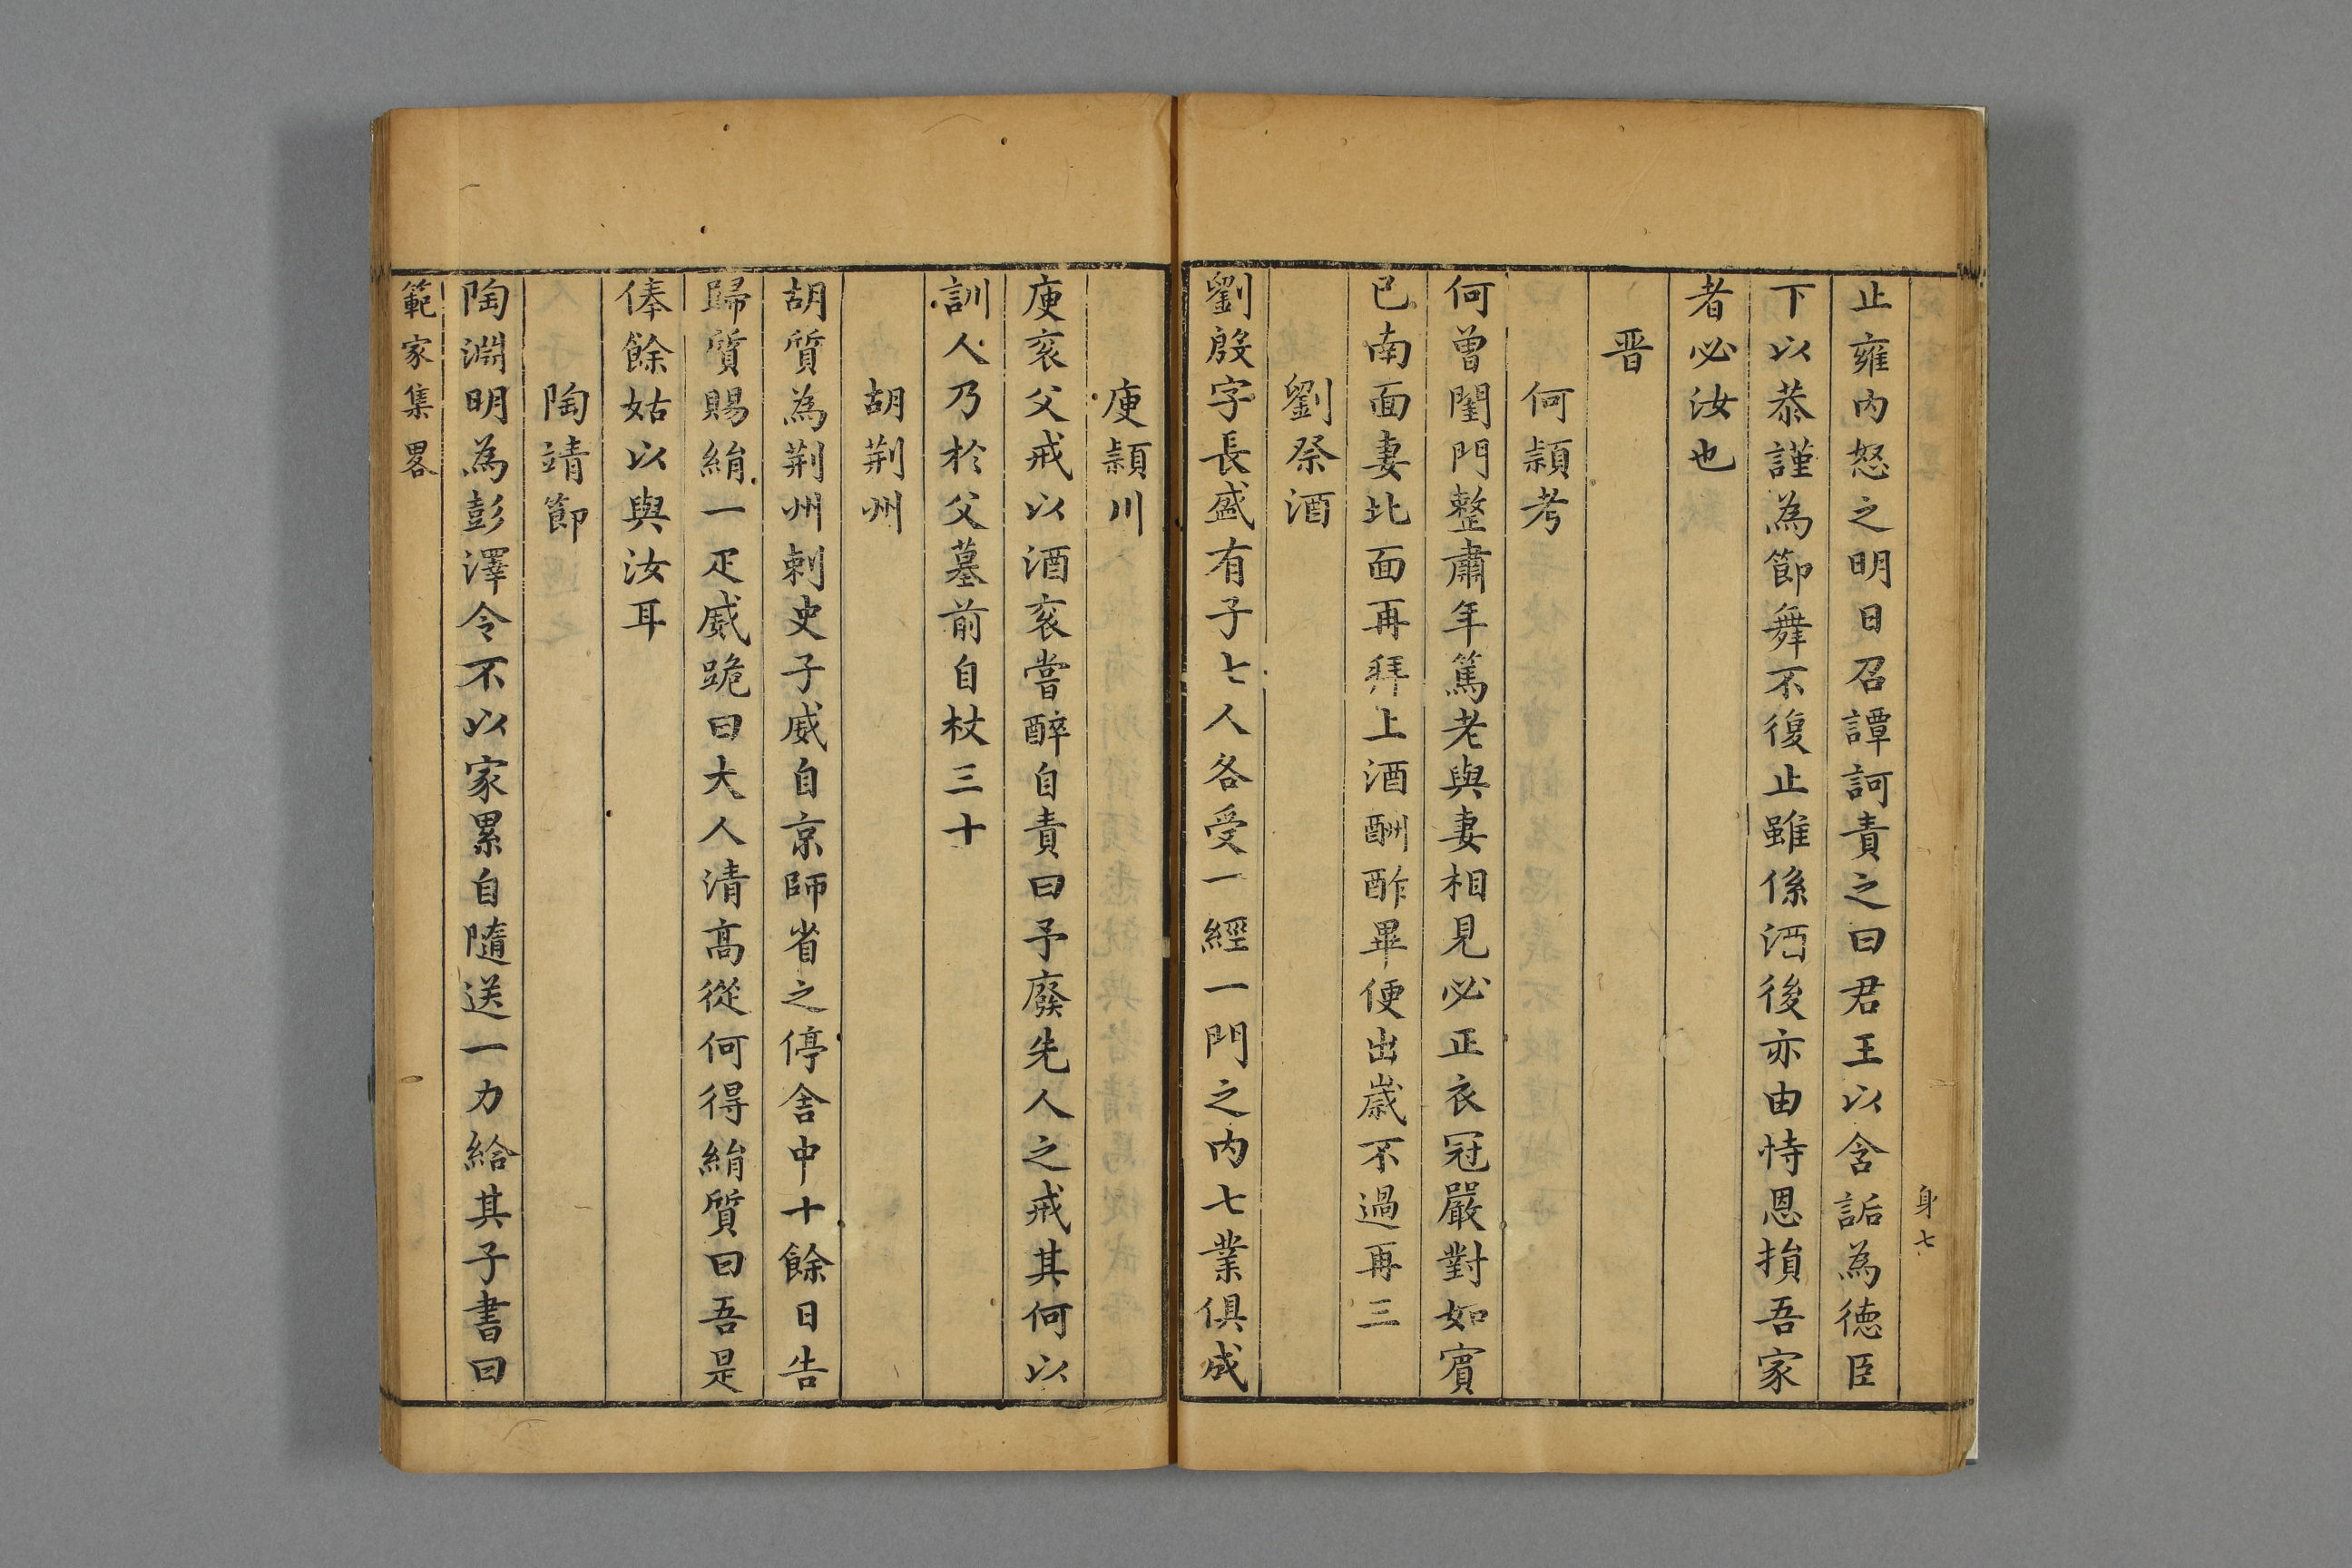 身七
止雍內怒之明日召譚訶責之曰君王以含詬為德臣
下以恭謹為節舞不復止雖係酒後亦由恃恩損吾家
者必汝也
晋
何潁考
何曾閨門整肅年篤老與妻相見必正衣冠嚴對如賓
已南面妻北面再拜上酒酬酢畢便出歲不過再三
劉祭酒
劉殷字長盛有子七人各受一經一門之內七業俱成
庾潁川
庾袞父戒以酒袞嘗醉自責曰予廢先人之戒其何以
訓人乃於父墓前自杖三十
胡荆州
胡質為荆州刺史子威自京師省之停舍中十餘日告
歸質賜絹一疋威跪曰大人清高從何得絹質曰吾是
俸餘姑以與汝耳
陶靖節
陶淵明為彭澤令不以家累自隨送一力給其子書曰
範家集畧